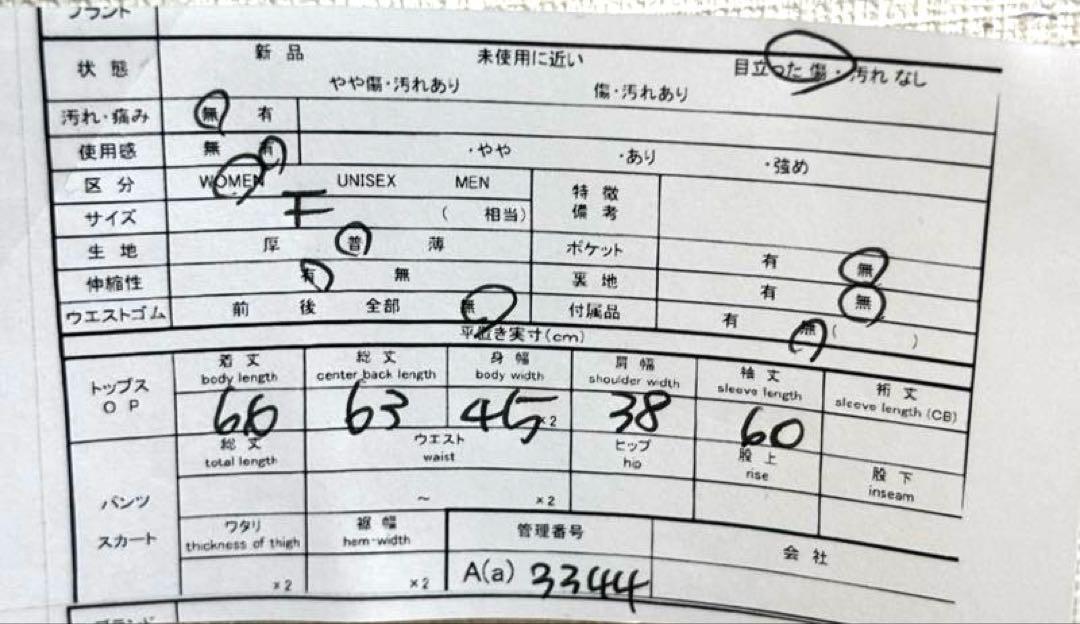 ブランド
状態 新品 未使用に近い 目立った傷・汚れなし
やや傷・汚れあり 傷・汚れあり
汚れ・痛み 無 有
使用感 無 有 ・やや ・あり ・強め
区分 WOMEN UNISEX MEN 特徴備考
サイズ F ( 相当)
生地 厚 普 薄 ポケット 有 無
伸縮性 有 無 裏地 有 無
ウエストゴム 前 後 全部 無 付属品 有 無( )
平置き実寸(cm)
トップス OP
着丈 総丈 身幅 肩幅 袖丈 裄丈
body length center back length body width shoulder width sleeve length sleeve length (CB)
66 63 45×2 38 60
パンツ スカート
総丈 ウエスト ヒップ 股上 股下
total length waist hip rise inseam
~ ×2
ワタリ 裾幅 管理番号 会社
thickness of thigh hem-width
×2 ×2 A(a) 3344
ブランド